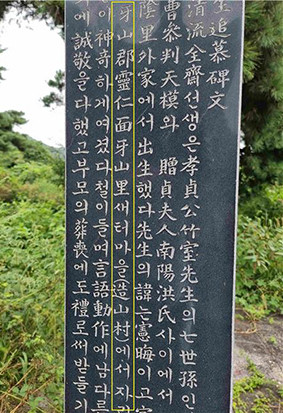 生追慕碑文
清流全齋선생은孝貞公竹室先生의七世孫인
曹參判天模와 贈貞夫人南陽洪氏사이에서
陰里外家에서出生했다先生의諱는憲晦이고字
牙山郡靈仁面牙山里새터마을(造山村)에서자라
이神奇하게여겼다철이들며言語動作에남다른
에誠敬을다했고부모의葬喪에도禮로써받들기